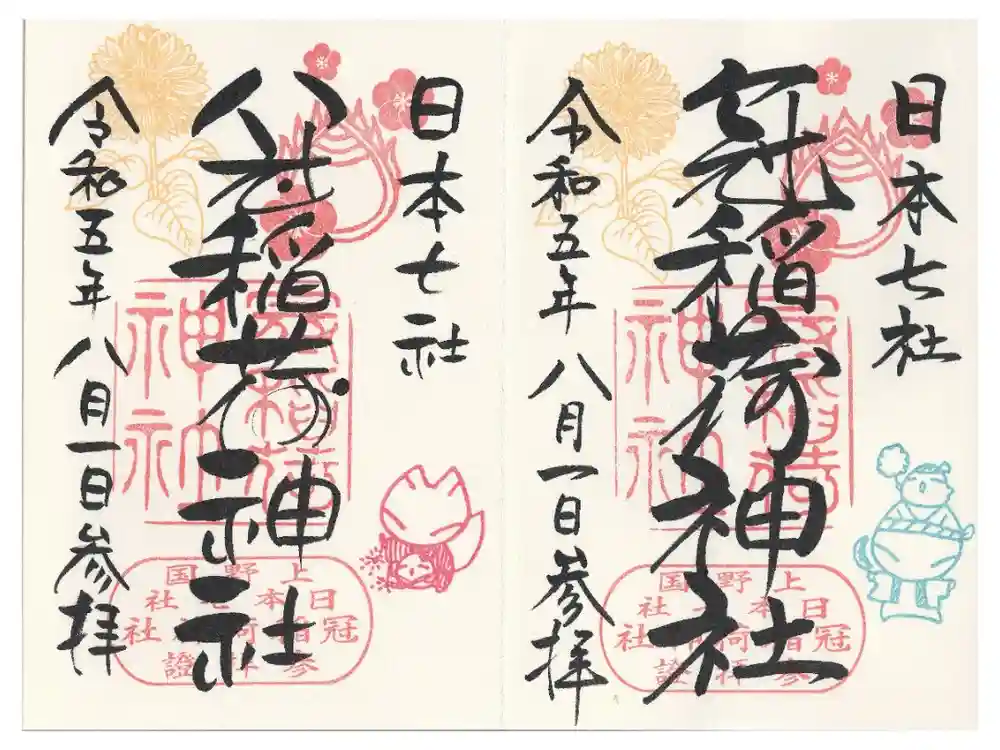 日本七社
冠稲荷神社
冠稲荷神社
上野国
日本七社
冠稲荷社
参拝證
令和五年八月一日参拝
日本七社
冠稲荷神社
冠稲荷神社
上野国
日本七社
冠稲荷社
参拝證
令和五年八月一日参拝